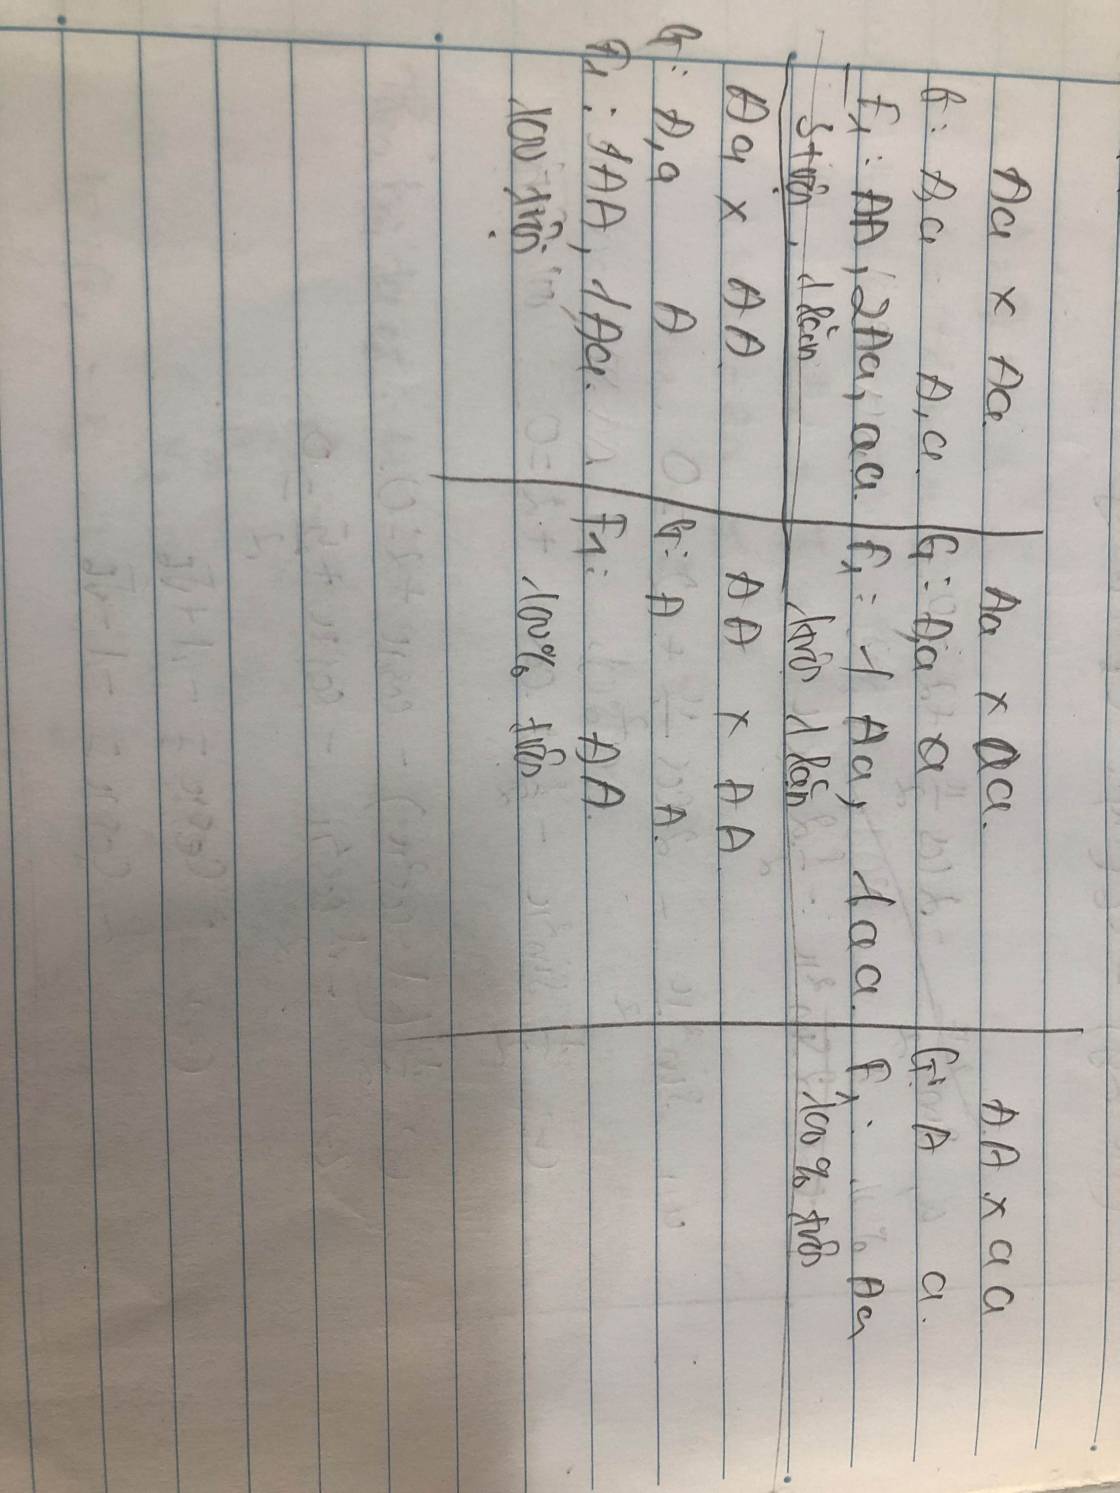 Aa x Aa.
G: A,a A,a.
F1: AA, 2Aa, aa.
3 trội, 1 lặn
Aa x aa.
G: A,a a
F1: 1 Aa, 1aa.
1 trội 1 lặn
AA x aa
G: A a.
F1: % Aa
100% trội
Aa x AA
G: A,a A
F1: 1AA, 1Aa.
100% trội
AA x AA
G: A A.
F1: AA.
100% trội